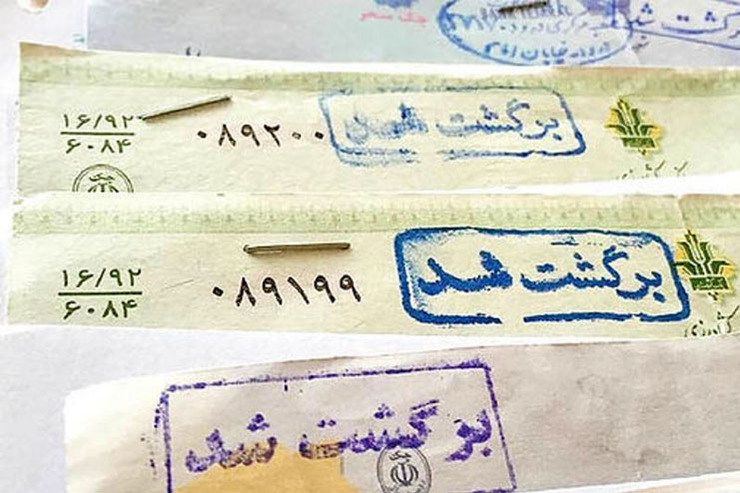 برگشت ش
چک سفر
برگشت شد
۱۶/۹۲
۶۰۸۴
۰۸۹۲۰۰
برگشت شد
۱۶/۹۲
۶۰۸۴
۰۸۹۱۹۹
کشاورزی
برگشت شد